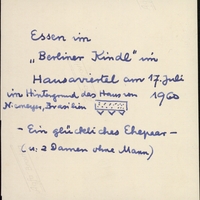 Essen im
„Berliner Kindl" im
Hansaviertel am 17. Juli
im Hintergrund das Haus von 1960
Niemeyer, Brasilien
- Ein glückliches Ehepaar -
(u. 2 Damen ohne Mann)